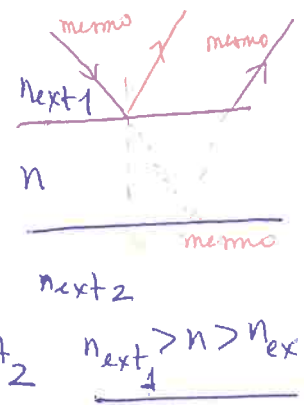 mesmo
mesmo
next1
n
mesmo
next2
t2 next1 > n > nex